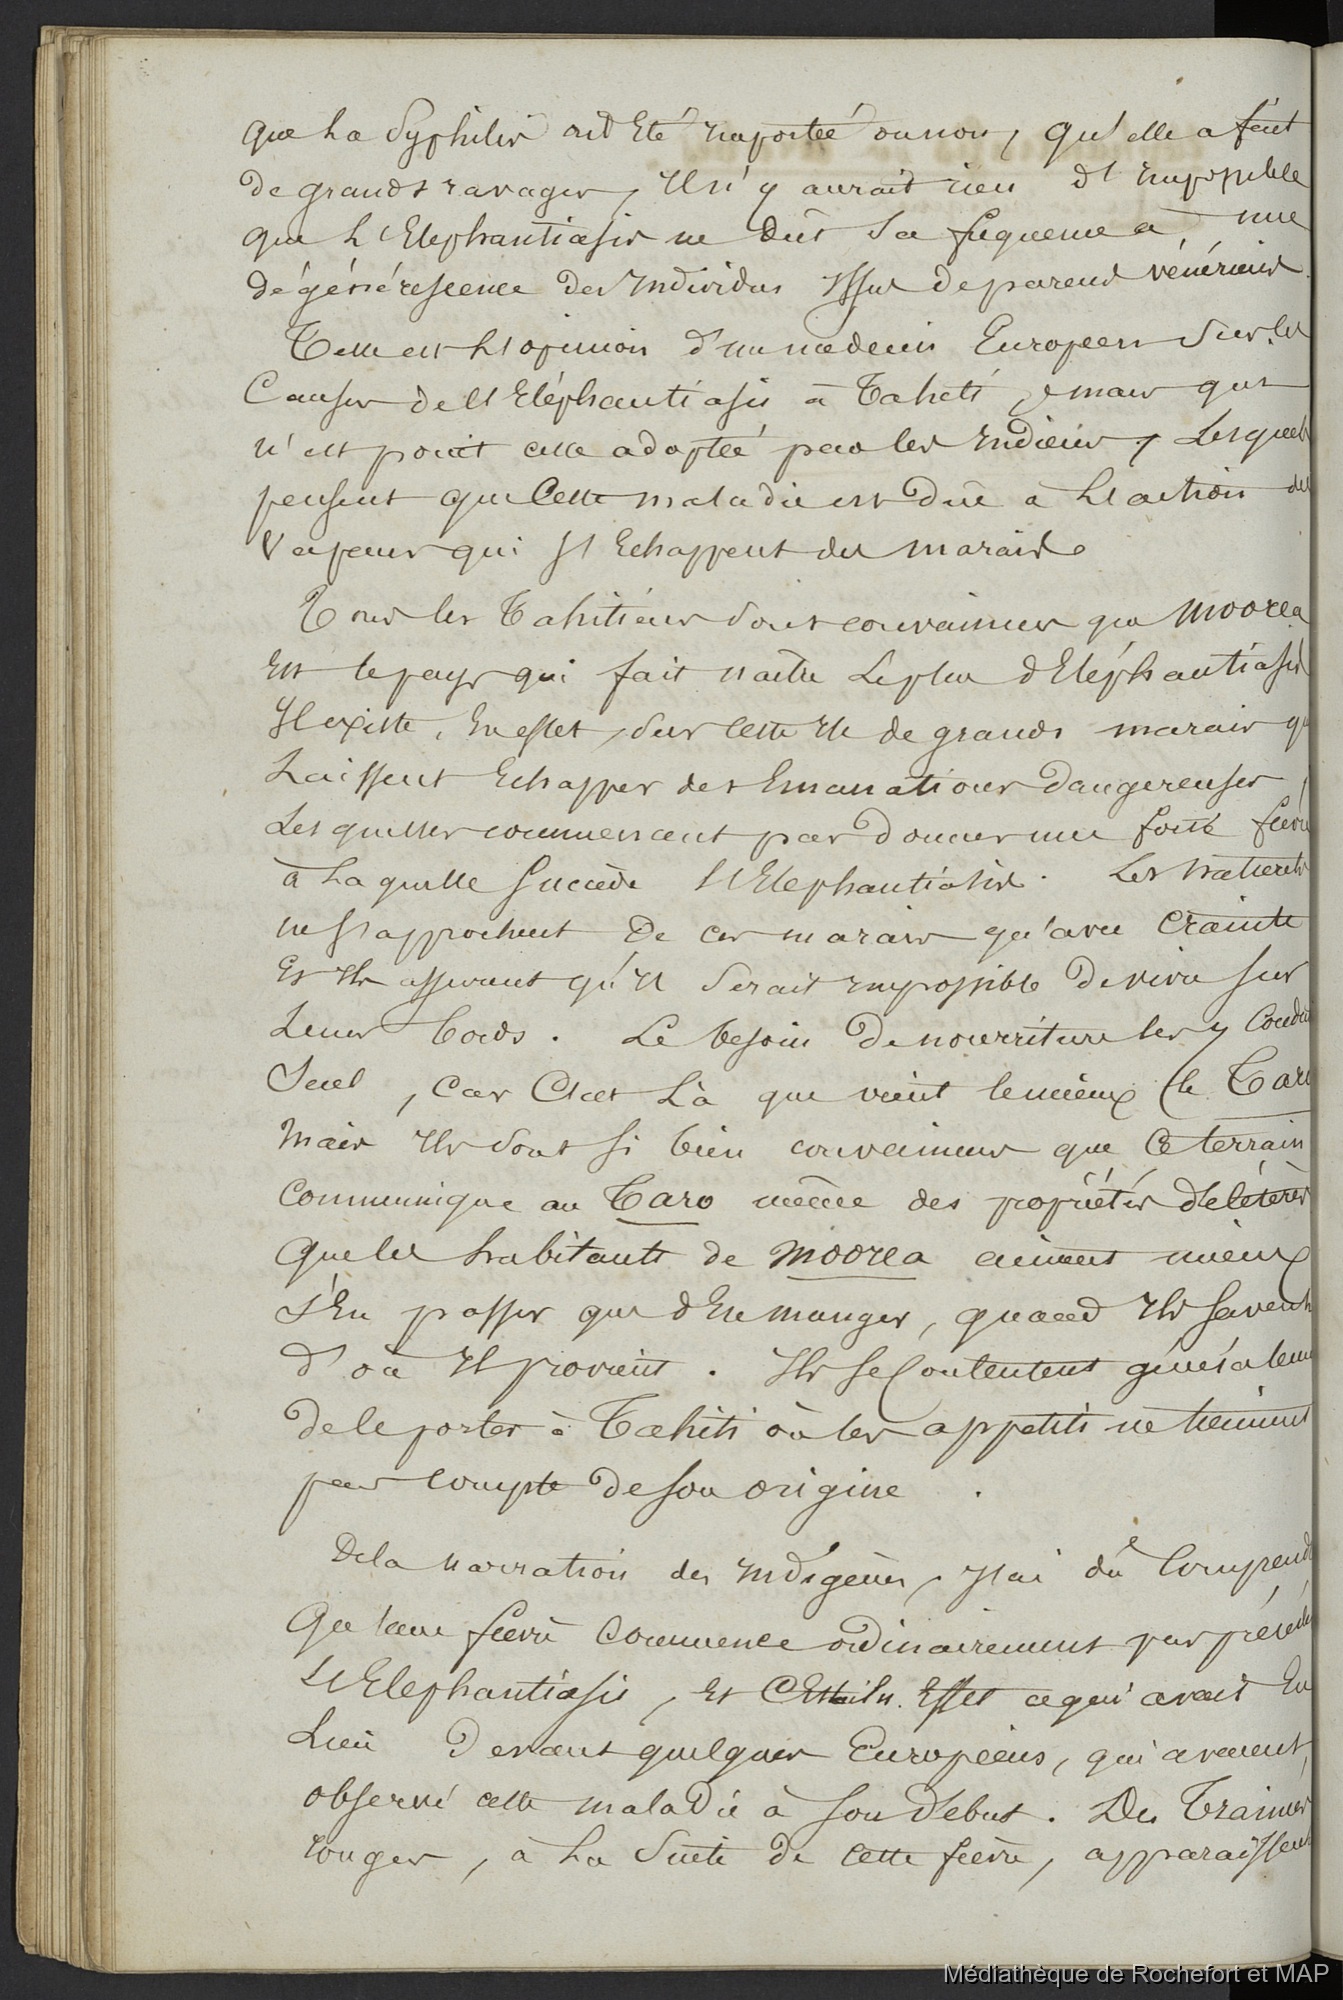 que la Syphilis ait été importée ou non, qu'elle a fait
de grands ravages, il n'y aurait rien d'impossible
que l'Elephantiasis ne dût sa fréquence à une
dégénérescence des individus issus de parens vénériens.
Telle est l'opinion d'un medecin Europeen sur les
Causes de l'Eléphantiasis à Taheti, mais qui
n'est point celle adoptée par les indiens, lesquels
pensent que Cette maladie est dûe à l'action des
Vapeurs qui s'Echappent des marais.
Tous les Tahitiens sont convaincus que Moorea
Est le pays qui fait naître le plus d'Eléphantiasis
Il existe, En effet, sur Cette ile de grands marais qu
Laissent Echapper des Emanations Dangereuses,
Lesquelles commencent par donner une forte fievre
à Laquelle Succède l'Elephantiasis. Les naturels
ne s'approchent De ces marais qu'avec Crainte
Et ils assurent qu'il Serait impossible De vivre sur
Leurs bords. Le besoin De nourriture les y Condui
Seul, Car C'est Là que vient le mieux le Taro
Mais ils sont si bien convaincus que Ce terrain
Communique au Taro même des propriétés délétères
Que les habitants de Moorea aiment mieux
s'En passer que d'En manger, quand ils savent
d'où il provient. Ils se Contentent générale­me
de le porter à Tahiti où les appetits ne tiennent
pas Compte De son origine.
De la narration des indigènes, j'ai dû Comprend
Qu'une fievre Commence ordinairement par précéder
l'Elephantiasis, Et C'Etait En Effet ce qui avait Eu
Lieu Devant quelques Européens, qui avaient
observé cette maladie à son debut. Des Trainées
rouges, à La Suite de Cette fièvre, apparaissent
Médiathèque de Rochefort et MAP